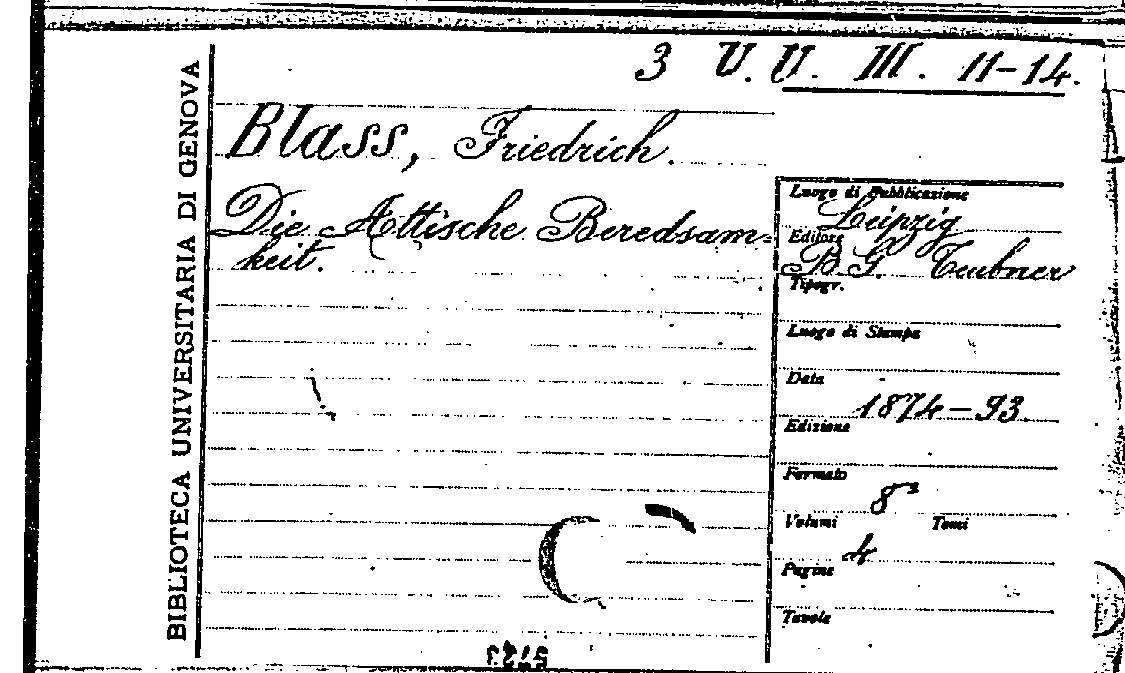 3 V.V. III. 11-14.
BIBLIOTECA UNIVERSITARIA DI GENOVA
Blass, Friedrich.
Die Attische Beredsam=
keit.
Luogo di Pubblicazione
Leipzig
Editore
B. G. Teubner
Tipogr.
Luogo di Stampa
Data
1874-93.
Edizione
Formato
8°
Volumi Tomi
4
Pagine
Tavole